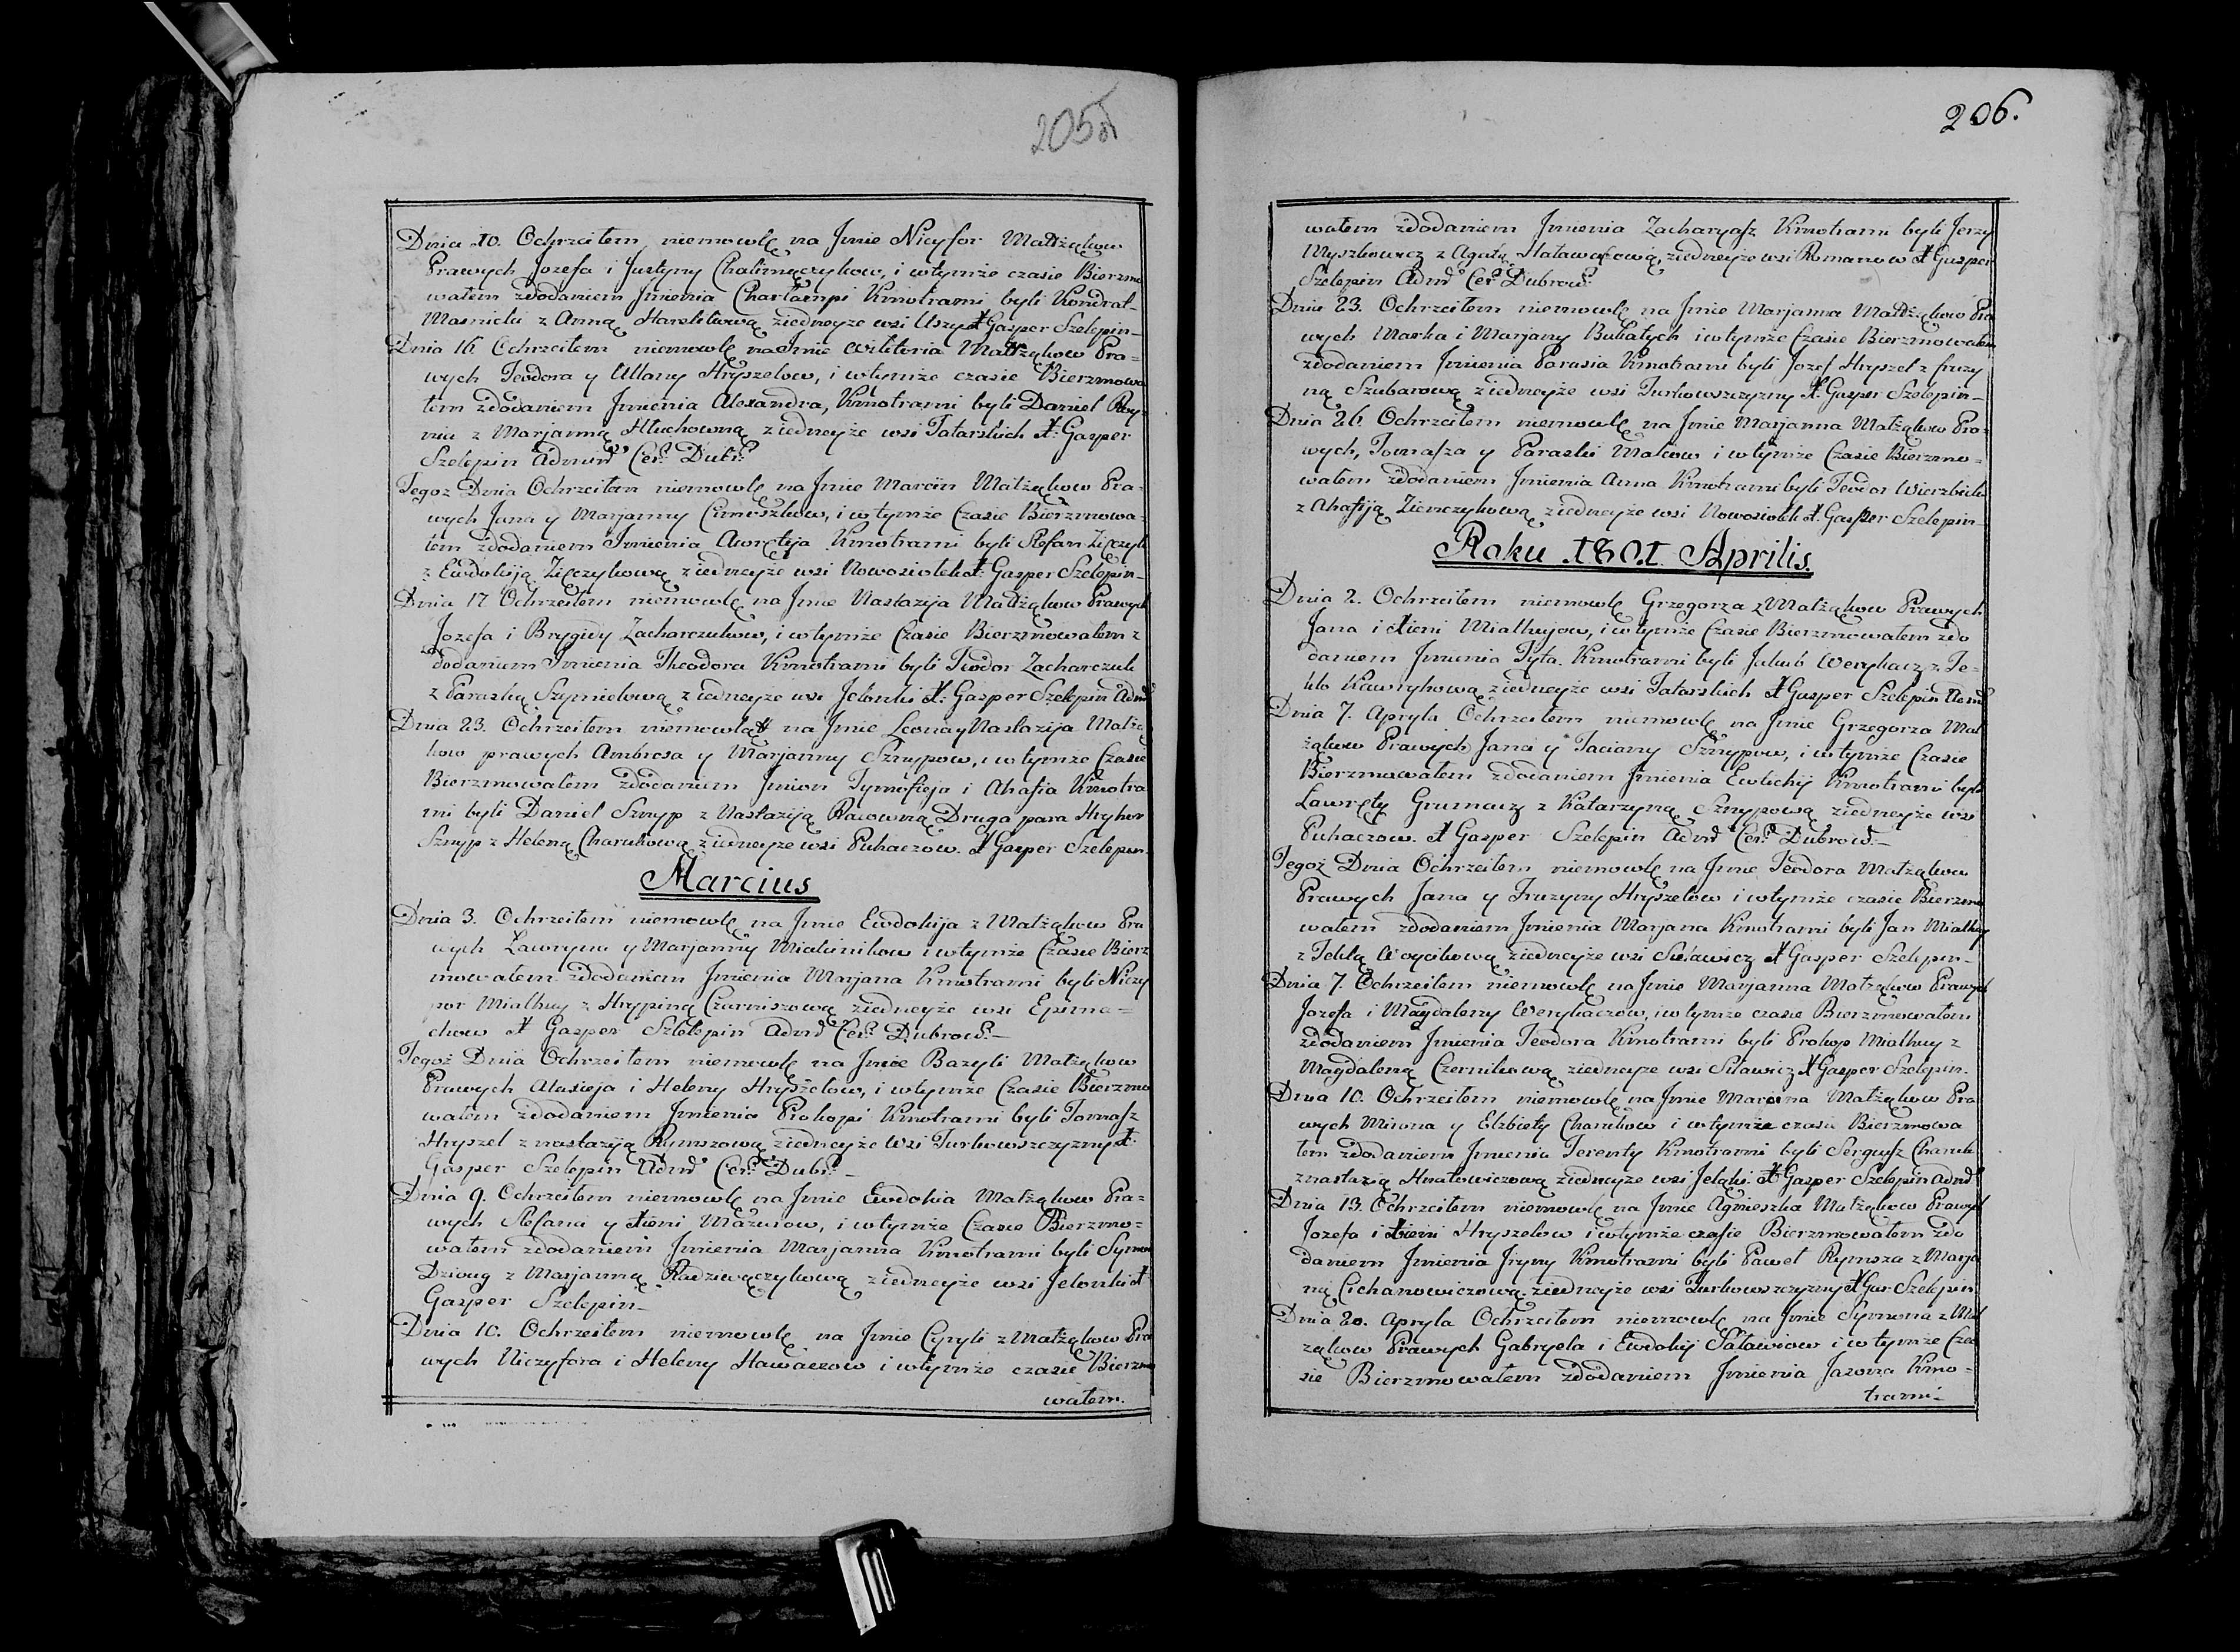 205ob
Dnia 10. Ochrzciłem niemowlę na Jmie Nicyfor Małżąkow
Prawych Jozefa i Justyny Chalimączykow, i wtymże czasie Bierzmo
wałem zdodaniem Jmienia Charłampi Kmotrami byli Kondrat
z Anną ziedneyże wsi X Gasper Szelepin
Dnia 16. Ochrzciłem niemowlę na Jmie Wiktoria Małżąkow Pra=
wych Teodora y Ullany Hryszelow, i wtymże czasie Bierzmowa
łem zdodaniem Jmienia Alexandra, Kmotrami byli Daniel
z Marjanną Hłuchowną ziedneyże wsi Tatarskich X. Gasper
Szelepin Admr Cer: Dubr:
Tegoż Dnia Ochrzciłem niemowlę na Jmie Marcin Małżąkow Pra=
wych Jana y Marjanny Cimoszkow, i wtymże Czasie Bierzmowa=
łem zdodaniem Jmienia Kmotrami byli Stefan Zięczyk
z Ewdokiją Zięczykową ziedneyże wsi Nowosiołek X: Gasper Szelepin
Dnia 17 Ochrzciłem niemowlę na Jmie Nastazija Małżąkow Prawych
Jozefa i Brygidy Zacharczukow, i wtymże Czasie Bierzmowałem z
dodaniem Jmienia Theodora Kmotrami byli Teodor Zacharczuk
z Paraską Szymielową ziedneyże wsi Jelonki X: Gasper Szelepin Admr
Dnia 23. Ochrzciłem niemowląt na Jmie Leona y Nastazija Małżą
kow prawych Ambrosa y Marjanny Sznypow, i wtymże Czasie
Bierzmowałem zdodaniem Jmion Tymofieja i Ahafia Kmotra
mi byli Daniel Sznyp z Nastaziją Racowną Druga para Hryhor
Sznyp z Heleną Charukową ziedneyże wsi Puhaczow. X Gasper Szelepin
Marcius
Dnia 3. Ochrzciłem niemowlę na Jmie Ewdokija z Małżąkow Pra
wych Ławryna y Marjanny i wtymże Czasie Bierz
mowałem zdodaniem Jmienia Marjana Kmotrami byli Niczy
por Miałkuy z Hrypiną Czarniszową ziedneyże wsi Epima=
chow X Gasper Szelepin Admr Cer: Dubrow:
Tegoż Dnia Ochrzciłem niemowlę na Jmie Bazyli Małżąkow
Prawych Alexieja i Heleny Hryszelow, i wtymże Czasie Bierzmo
wałem zdodaniem Jmienia Prokopi Kmotrami byli Tomasz
Hryszel z nastaziją Rymszową ziedneyże wsi Turkowszczyzny X:
Gasper Szelepin Admr Cer: Dubr:
Dnia 9. Ochrzciłem niemowlę na Jmie Ewdokia Małżąkow Pra=
wych Stefana y Xieni Mazurow, i wtymże Czasie Bierzmo=
wałem zdodaniem Jmienia Marjanna Kmotrami byli Symon
z Marjanną Radziwączykową ziedneyże wsi Jelonki X
Gasper Szelepin
Dnia 10. Ochrzciłem niemowlę na Jmie Cyryli z Małżąkow Pra
wych Niczyfora i Heleny Hawaczow i wtymże czasie Bierzmo
wałem.
206.
wałem zdodaniem Jmienia Zacharyasz Kmotrami byli Jerzy
Myszkowicz z Agatą ziedneyże wsi Romanow X Gasper
Szelepin Admr Cer Dubrow:
Dnia 23. Ochrzciłem niemowlę na Jmie Marjanna Małżąkow Pra
wych Marka i Marjany Bukatych i wtymże Czasie Bierzmowałem
zdodaniem Jmienia Parasia Kmotrami byli Jozef Hryszel z fruzy
ną Szubarową ziedneyże wsi Turkowszczyzny X. Gasper Szelepin
Dnia 26. Ochrzciłem niemowlę na Jmie Marjanna Małżąkow Pra=
wych, Tomasza y Paraski i wtymże Czasie Bierzmo=
wałem zdodaniem Jmienia Anna Kmotrami byli Teodor Wierzbicki
z Ahafiją Zienczykową ziedneyże wsi Nowosiołek X. Gasper Szelepin
Roku 1801. Aprilis.
Dnia 2. Ochrzciłem niemowlę Grzegorza z Małżąkow Prawych
Jana i Xieni Miałkujow, i wtymże Czasie Bierzmowałem zdo
daniem Jmienia Tyta. Kmotrami byli Jakub Werykacz z Te=
klo Kawrykową ziedneyże wsi Tatarskich X Gasper Szelepin Admr
Dnia 7. Apryla Ochrzciłem niemowlę na Jmie Grzegorza Mał
żąkow Prawych Jana y Taciany Sznypow, i wtymże Czasie
Bierzmowałem zdodaniem Jmienia Ewtichij Kmotrami byli
Ławręty Grumacz z Katarzyną Sznypową ziedneyże wsi
Puhaczow. X Gasper Szelepin Admr Cer: Dubrow:
Tegoż Dnia Ochrzciłem niemowlę na Jmie Teodora Małżąkow
Prawych Jana y Fruzyny Hryszelow i wtymże czasie Bierzmo
wałem zdodaniem Jmienia Marjana Kmotrami byli Jan Miałkuy
z Teklą Woycikową ziedneyże wsi Siławicz X Gasper Szelepin
Dnia 7. Ochrzciłem niemowlę na Jmie Marjanna Małżąkow Prawych
Jozefa i Magdaleny Werykaczow, i wtymże czasie Bierzmowałem
zdodaniem Jmienia Teodora Kmotrami byli Prokop Miałkuy z
Magdaleną Czernikową ziedneyże wsi Siławicz X Gasper Szelepin.
Dnia 10. Ochrzciłem niemowlę na Jmie Marcina Małżąkow Pra
wych Mirona y Elzbiety Charukow i wtymże czasu Bierzmowa
łem zdodaniem Jmienia Terenty Kmotrami byli Sergusz Charuk
znastazią Hnatowiczową ziedneyże wsi Jeląki X Gasper Szelepin Admr
Dnia 13. Ochrzciłem niemowlę na Jmie Agnieszka Małżąkow Prawych
Jozefa i Xieni Hryszelow i wtymże czasie Bierzmowałem zdo
daniem Jmienia Jryny Kmotrami byli Paweł Rymsza z Marja
ną Cichanowiczową ziedneyże wsi Turkowszczyzny X Gas: Szelepin
Dnia 20. Apryla Ochrzciłem niemowlę na Jmie Symona z Mał
żąkow Prawych Gabryela i Ewdokij i wtymże Cza
sie Bierzmowałem zdodaniem Jmienia Jasona Kmo=
trami